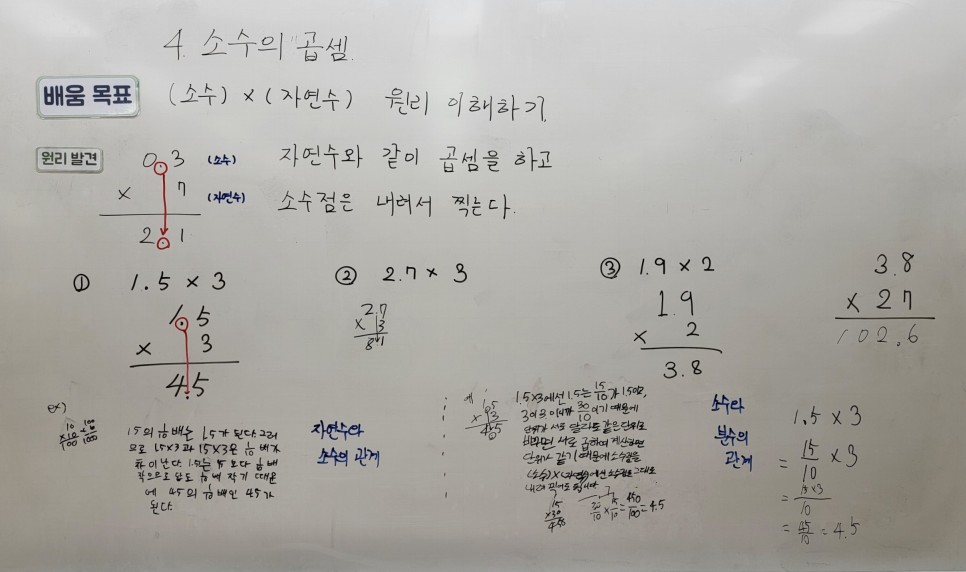 4. 소수의 곱셈.
배움 목표
(소수) × (자연수) 원리 이해하기.
원리 발견
0.3 (소수)
× 7 (자연수)
2.1
자연수와 같이 곱셈을 하고
소수점은 내려서 찍는다.
① 1.5 × 3
1.5
× 3
4.5
② 2.7 × 3
2.7
× 3
8.1
③ 1.9 × 2
1.9
× 2
3.8
3.8
× 27
102.6
ex)
15의 1/10배는 1.5가 된다. 그러
므로 1.5×3과 15×3은 1/10 배가
차이난다. 1.5는 15 보다 1/10 배
작으므로 답도 1/10배 작기 때문
에 45의 1/10 배인 4.5가
된다.
자연수와
소수의 관계
예
1.5×3에선 1.5는 15/10가 1.5이고,
3이 30/10이기 때문에
단위가 서로 달라도 같은 단위로
서로 곱하여 계산하면
단위가 같기 때문에 소수점을
(소수)×(자연수)에선 소수점을 그대로
내려 찍어도 됩니다
15
×30
450
30/10 × 15/10 = 450/100 = 4.5
소수와
분수의
관계
1.5 × 3
= 15/10 × 3
= 15×3/10
= 45/10 = 4.5